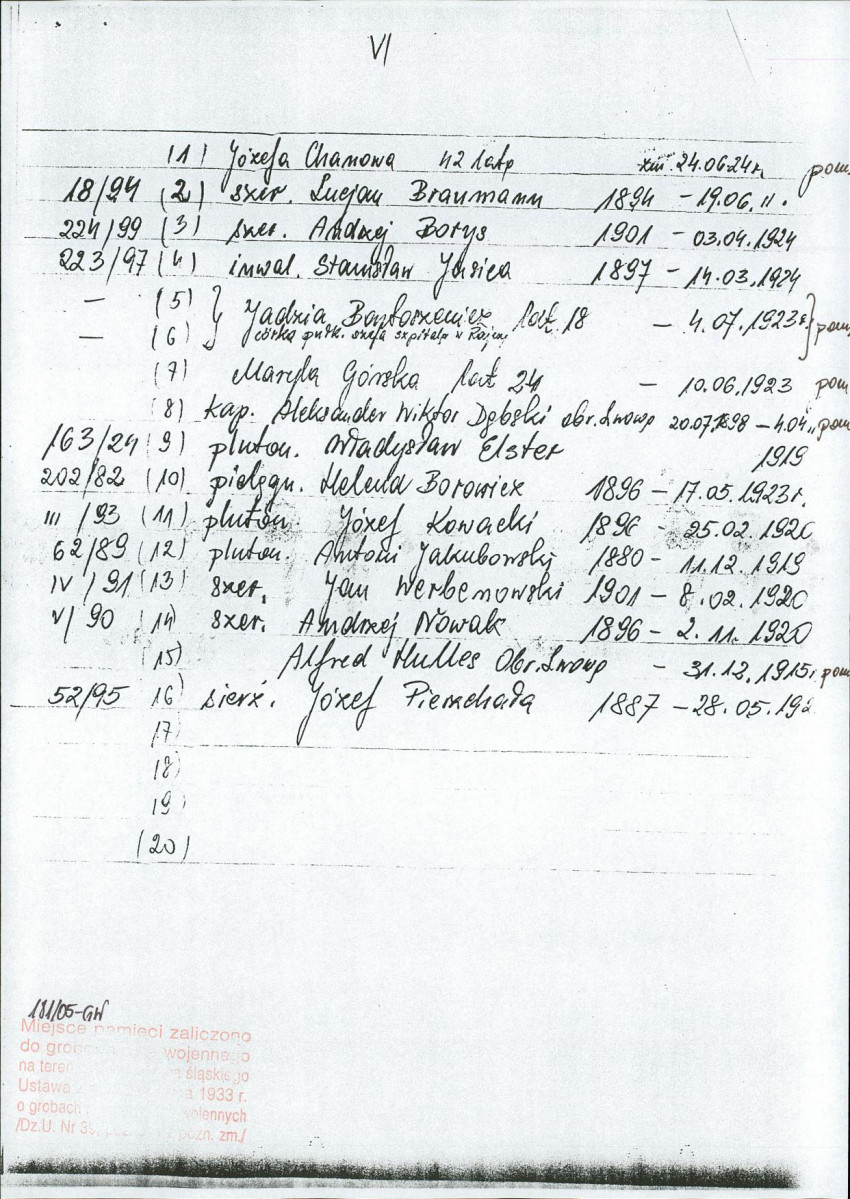 VI
(1) Józefa Chanowa 42 lata zm. 24.06.24 r. pom.
18/94 (2) szer. Lucjan Braumann 1894 - 19.06. 11.
224/99 (3) szer. Andrzej Borys 1901 - 03.04.1924
223/97 (4) inwal. Stanisław Jasica 1897 - 14.03.1924
— (5) Jadzia Bartoszewicz lat 18 — 4.07.1923 r. pom.
— (6) córka pułk. szefa szpitala w
(7) Maryla Górska lat 24 — 10.06.1923 pom
(8) kap. Aleksander Wiktor Dębski obr. Lwowa 20.07.1898 - 4.04. " pom
163/24 (9) pluton. Władysław Elster 1919
202/82 (10) pielęgn. Helena Borowiex 1896 - 17.05.1923 r.
III /93 (11) pluton. Józef Kowacki 1896 - 25.02.1920
62/89 (12) pluton. Antoni Jakubowski 1880 - 11.12.1919
IV /91 (13) szer. Jan Werbenowski 1901 - 8.02.1920
V/ 90 (14) szer. Andrzej Nowak 1896 - 2.11.1920
(15) Alfred Hulles Obr. Lwowa - 31.12.1915 r. pom
52/95 16) sierż. Józef Pierzchała 1887 - 28.05.192
17)
18)
19)
(20)
181/05-GW
Miejsce pamięci zaliczono
do wojennego
na śląskiego
Ustawa 1933 r.
o grobach
/Dz.U. Nr pozn. zm./